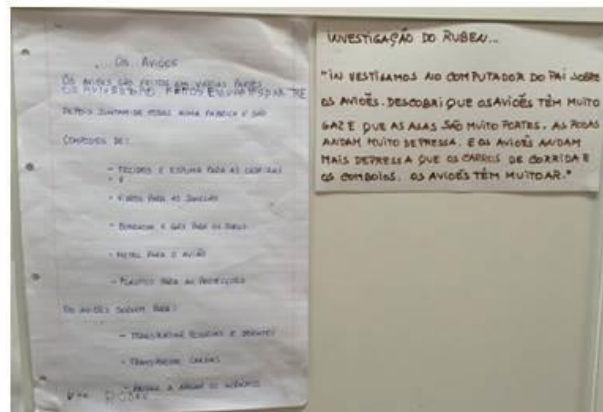 OS AVIÕES
OS AVIÕES SÃO FEITOS EM VÁRIAS PARTES
DEPOIS JUNTAM-SE TODAS NUMA FÁBRICA E SÃO
COMPOSTOS DE:
- TECIDOS E ESPUMA PARA AS CADEIRAS
- VIDROS PARA AS JANELAS
- BORRACHA E GÁS PARA OS PNEUS
- METAL PARA O AVIÃO
- PLÁSTICO PARA AS PROTECÇÕES
OS AVIÕES SERVEM PARA:
- TRANSPORTAR PESSOAS E DOENTES
- TRANSPORTAR CARGAS
- AJUDAR A APAGAR OS INCÊNDIOS
INVESTIGAÇÃO DO RUBEN...
"INVESTIGAMOS NO COMPUTADOR DO PAI SOBRE
OS AVIÕES. DESCOBRI QUE OS AVIÕES TÊM MUITO
GAZ E QUE AS ASAS SÃO MUITO FORTES. AS RODAS
ANDAM MUITO DEPRESSA. E OS AVIÕES ANDAM
MAIS DEPRESSA QUE OS CARROS DE CORRIDA E
OS COMBOIOS. OS AVIÕES TÊM MUITO AR."